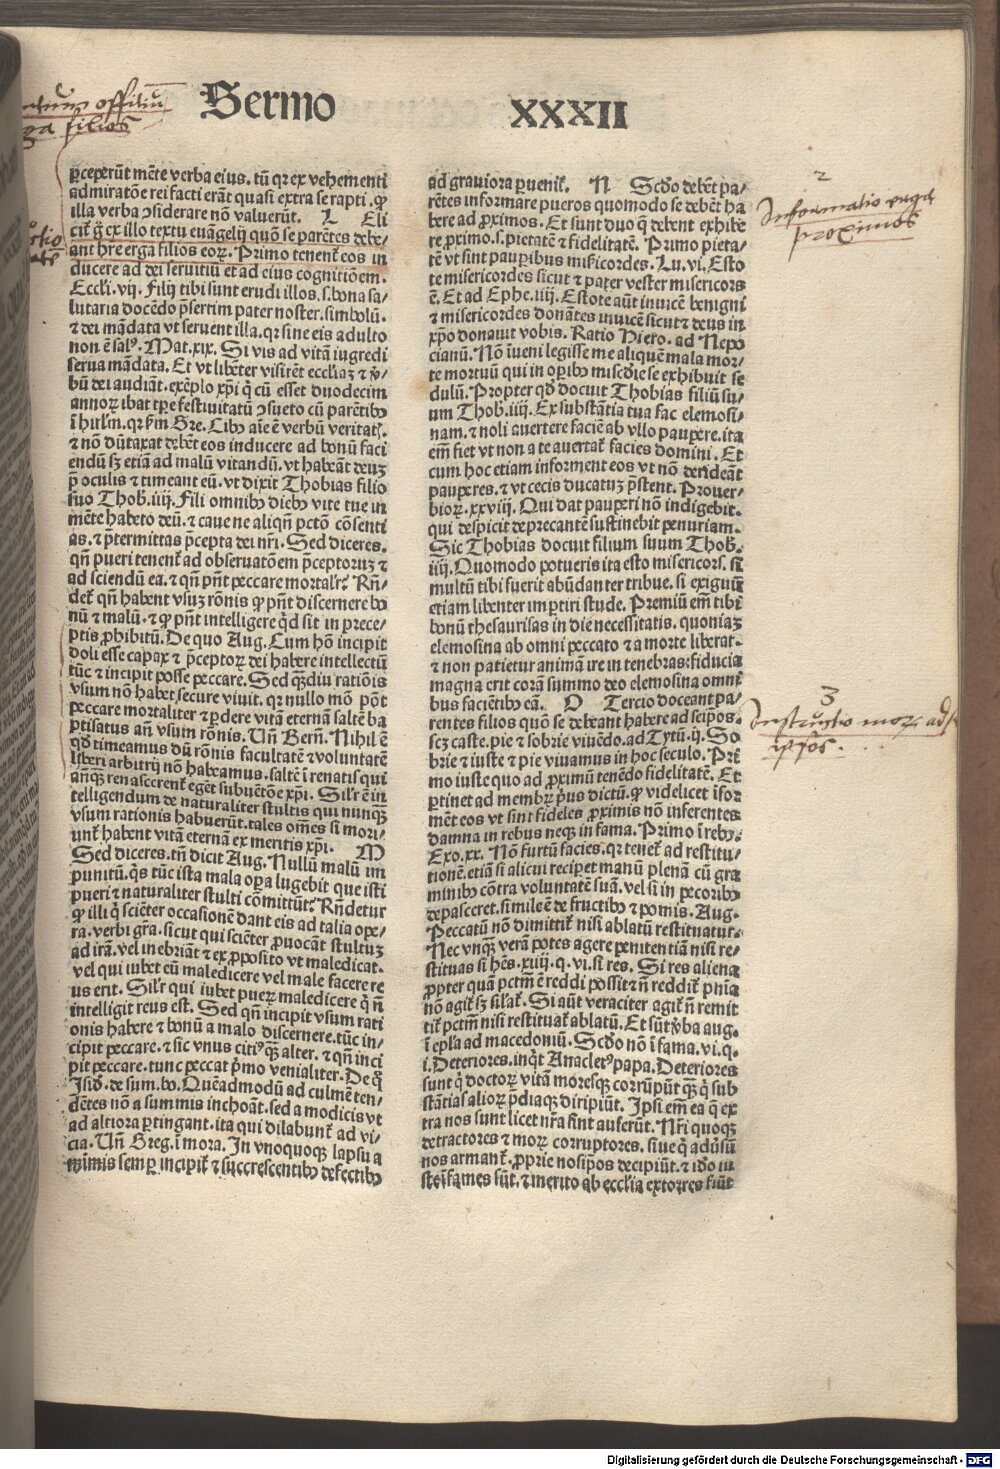 Sermo XXXII
offitiū
filios
ꝑceperūt mēte verba eius. tū qꝛ ex vehementi
admiratōe rei facti erāt quasi extra se rapti. ꝙ
illa verba ꝯsiderare nō valuerūt. L Eli
citꝛ g̃ ex illo textu euāgelij quō se parētes debe⸗
ant hr̄e erga filios eoꝝ. Primo tenentꝛ eos in
ducere ad dei seruitiū et ad eius cognitiōem.
Eccli. vij. Filij tibi sunt erudi illos. s. bona sa⸗
lutaria docēdo p̄sertim pater noster. simbolū.
⁊ dei mādata vt seruent illa. qꝛ sine eis adulto
non ē salꝰ. Mat. xix. Si vis ad vitā ingredi
serua mādata. Et vt libēter visitēt eccliaꝫ ⁊ ꝟ⸗
bū dei audiāt. exēplo xp̄i q̇ cū esset duodecim
annoꝝ ibat tp̄e festiuitatū ꝯsueto cū parētibꝰ
ī hirlm̄. qꝛ ẜm Gre. Cibꝰ aīe ē verbū veritatꝭ.
⁊ nō dūtaxat debēt eos inducere ad bonū faci
endū sꝫ etiā ad malū vitandū. vt habeāt deuꝫ
p̄ oculis ⁊ timeant eū. vt dixit Thobias filio
suo Thob. iiij. Fili omnibꝰ diebꝰ vite tue in
mēte habeto deū. ⁊ caue ne aliqn̄ pctō cōsenti
as. ⁊ p̄termittas p̄cepta dei nr̄i. Sed diceres.
qn̄ pueri tenentꝛ ad obseruatōem p̄ceptoruꝫ ⁊
ad sciendū ea. ⁊ qn̄ pn̄t peccare mortalr̄? Rn̄⸗
detꝛ qn̄ habent vsuꝫ rōnis ꝙ pn̄t discernere bo
nū ⁊ malū. ⁊ ꝙ pn̄t intelligere qd̓ sit in prece⸗
ptis ꝓhibitū. De quo Aug. Cum hō incipit
doli esse capax ⁊ p̄ceptoꝝ dei habere intellectū
tūc ⁊ incipit posse peccare. Sed qꝫdiu ratiōis
vsum nō habet secure viuit. qꝛ nullo mō pōt
peccare mortaliter ⁊ ꝑdere vitā eternā saltē ba
ptisatus an̄ vsum rōnis. Un̄ Bern̄. Nihil ē
qd̓ timeamus dū rōnis facultatē ⁊ voluntatē
liberi arbitrij nō habeamus. saltē ī renatis qui
anq̄ꝫ renascerentꝛ egēt subuētōe xp̄i. Silr̄ ē in
telligendum de naturaliter stultis qui nunq̄ꝫ
vsum rationis habuerūt. tales oēs si mori⸗
untꝛ habent vitā eternā ex meritis xp̄i. M
Sed diceres. tn̄ dicit Aug. Nullū malū im
punitū. q̇s tūc ista mala oꝑa lugebit que isti
pueri ⁊ naturaliter stulti cōmittūt? Rn̄detur
ꝙ illi q̇ sciēter occasionē dant eis ad talia ope⸗
ra. verbi gr̄a. sicut qui sciēter ꝓuocāt stultuꝫ
ad irā. vel inebriāt ⁊ ex ꝓposito vt maledicat.
vel qui iubet eū maledicere vel male facere re
us erit. Silr̄ qui iubet pueꝝ maledicere q̇ n̄
intelligit reus est. Sed qn̄ incipit vsum rati
onis habere ⁊ bonū a malo discernere. tūc in⸗
cipit peccare. ⁊ sic vnus citiꝰ q̄ꝫ alter. ⁊ qn̄ inci
pit peccare. tunc peccat p̄mo venialiter. De q̊
Isid̓. de sum. bo. Quēadmodū ad culmē ten⸗
dētes nō a summis inchoāt. sed a modicis vt
ad altiora ꝑtingant. ita qui dilabuntꝛ ad vi⸗
cia. Un̄ Greg. ī mora. In vnoquoqꝫ lapsu a
minimis semꝑ incipitꝛ ⁊ succrescentibꝰ defectibꝰ
ad grauiora ꝑuenitꝛ. N Scd̓o debēt pa⸗
rētes informare pueros quomodo se debēt ha
bere ad ꝓximos. Et sunt duo q̄ debent exhibe
re ꝓximo. s. pietatē ⁊ fidelitatē. Primo pieta⸗
tē vt sint pauꝑibus mīcordes. Lu. vi. Esto
te misericordes sicut ⁊ pater vester misericors
ē. Et ad Ephe. iiij. Estote aūt inuicē benigni
⁊ misericordes donātes inuicē sicut ⁊ deus in
xp̄o donauit vobis. Ratio Hiero. ad Nepo
cianū. Nō īueni legisse me aliquē mala mor⸗
te mortuū qui in oꝑibꝰ mīscd̓ie se exhibuit se
dulū. Propter qd̓ docuit Thobias filiū su⸗
um Thob̄. iiij. Ex substātia tua fac elemosi⸗
nam. ⁊ noli auertere faciē ab vllo pauꝑe. ita
em̄ fiet vt non a te auertatꝛ facies domini. Et
cum hoc etiam informent eos vt nō derideāt
pauperes. ⁊ vt cecis ducatuꝫ p̄stent. Prouer⸗
bioꝝ. xxviij. Qui dat pauperi nō indigebit.
qui despicit deprecantē sustinebit penuriam.
Sic Thobias docuit filium suum Thob̄.
iiij. Quomodo potueris ita esto misericors. si
multū tibi fuerit abūdanter tribue. si exiguū
etiam libenter impartiri stude. Premiū em̄ tibi
bonū thesaurisas in die necessitatis. quoniaꝫ
elemosina ab omni peccato ⁊ a morte liberat.
⁊ non patietur animā ire in tenebras: fiducia
magna erit corā summo deo elemosina omni
bus faciētibꝰ eā. O Tercio doceant pa⸗
rentes filios quō se debeant habere ad seipos.
scꝫ caste. pie ⁊ sobrie viuēdo. ad Tytū. ij. So
brie ⁊ iuste ⁊ pie viuamus in hoc seculo. Pr̄e
mo iuste quo ad ꝓximū tenēdo fidelitatē. Et
ꝑtinet ad membꝝ p̄us dictū. ꝙ videlicet īfor
mēt eos vt sint fideles ꝓximis nō inferentes
damna in rebus neqꝫ in fama. Primo ī rebꝰ.
Exo. xx. Nō furtū facies. qꝛ tenetꝛ ad restitu⸗
tionē. etiā si alicui reciꝑet manū plenā cū gra
minibꝰ cōtra voluntatē suā. vel si in pecoribꝰ
depasceret. simile ē de fructibꝰ ⁊ pomis. Aug.
Peccatū nō dimittitꝛ nisi ablatū restituatur.
Nec vnq̄ꝫ verā potes agere penitentiā nisi re⸗
stituas si hēs. xiiij. q. vi. si res. Si res aliena
ꝓpter quā pctm̄ ē reddi possit ⁊ n̄ redditꝛ pn̄ia
nō agitꝛ sꝫ sil̓atꝛ. Si aūt veraciter agitꝛ n̄ remit
titꝛ pctm̄ nisi restituatꝛ ablatū. Et sūt ꝟba aug.
ī epl̓a ad macedoniū. Scd̓o nō ī fama. vi. q.
i. Deteriores. inq̇t Anacletꝰ papa. Deteriores
sunt q̇ doctoꝝ vitā moresqꝫ corrūpūt q̄ꝫ q̇ sub
stātias alioꝝ p̄diaqꝫ diripiūt. Ipsi em̄ ea q̄ ex
tra nos sunt licet nr̄a sint auferūt. Nr̄i quoqꝫ
detractores ⁊ moꝝ corruptores. siue q̇ aduīsū
nos armantꝛ. ꝓprie nosip̄os decipiūt. ⁊ id̓o iu
ste īfames sūt. ⁊ merito ab eccl̓ia extorres fiūt
2
Informatio erga
proximos
3
Instructio mor. ad
ipsos.
Digitalisierung gefördert durch die Deutsche Forschungsgemeinschaft - DFG